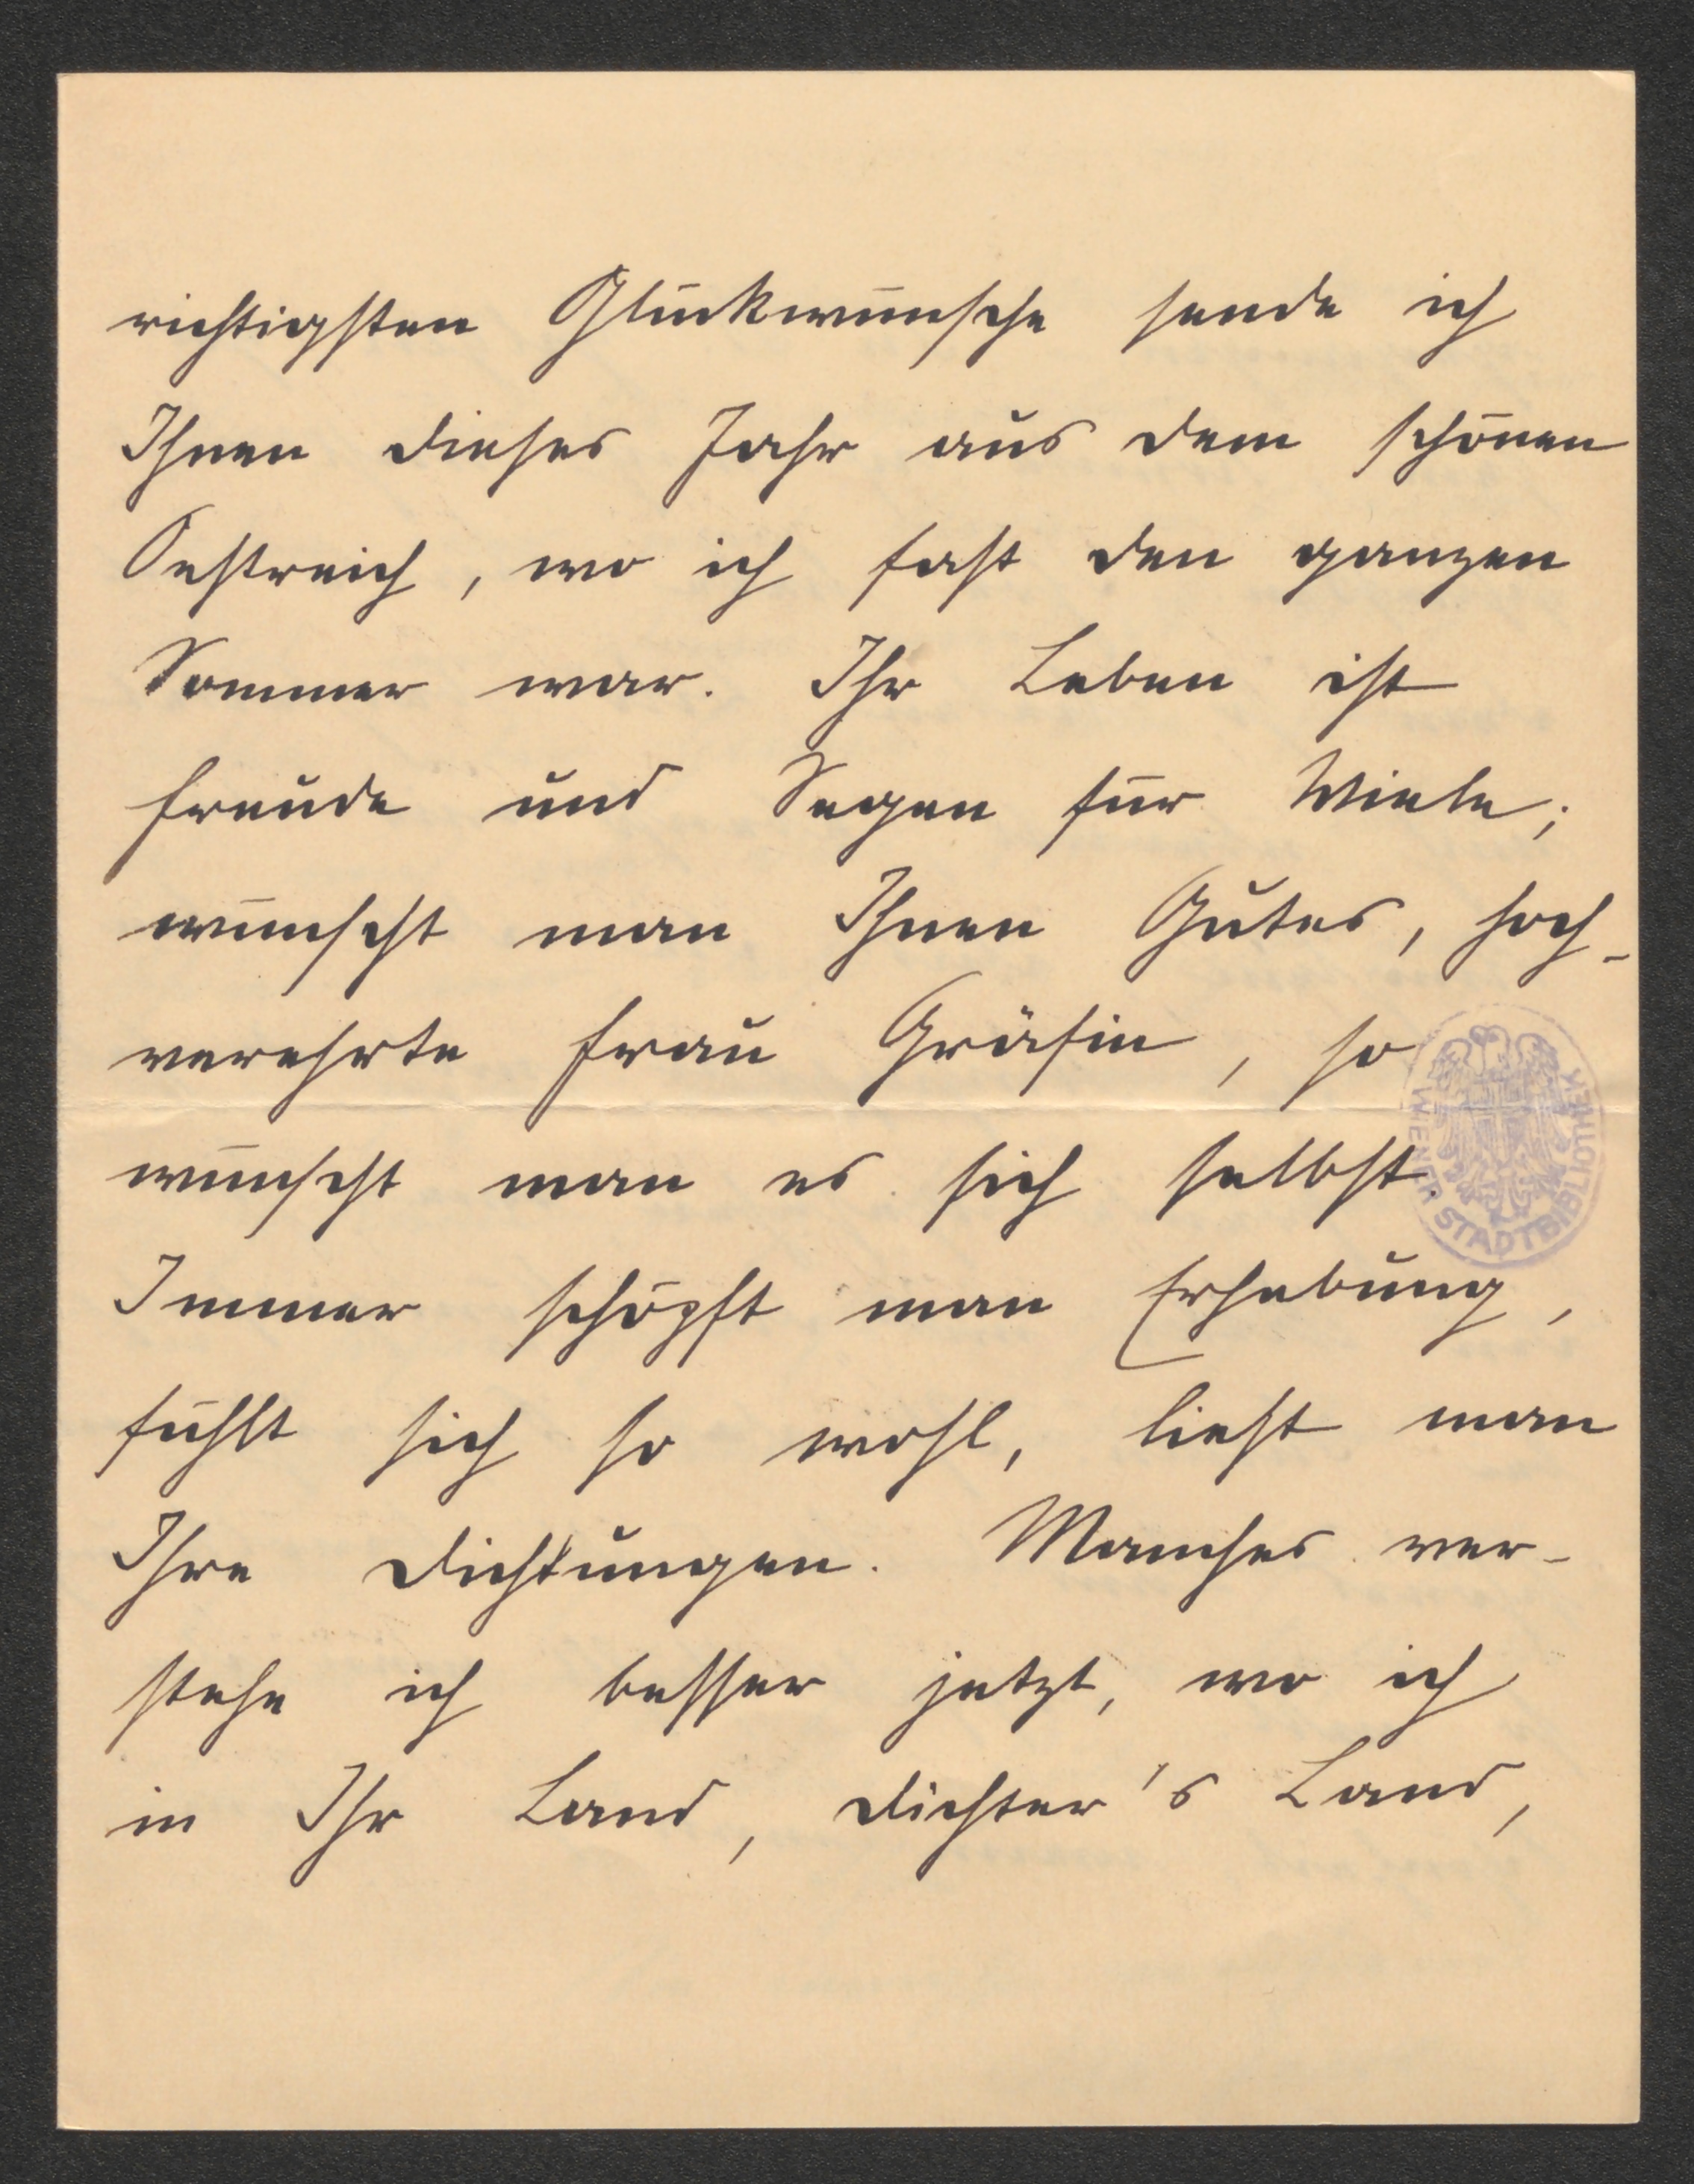 richtigsten Glückwünsche sende ich
Ihnen dieses Jahr aus dem schönen
Oestreich, wo ich fast den ganzen
Sommer war. Ihr Leben ist
Freude und Segen für Viele;
wünscht man Ihnen Gutes, hoch-
verehrte Frau Gräfin, so
wünscht man es sich selbst.
Immer schöpft man Erhebung,
fühlt sich so wohl, liest man
Ihre Dichtungen. Manches ver-
stehe ich besser jetzt, wo ich
in Ihr Land, Dichter's Land,
WIENER STADTBIBLIOTHEK